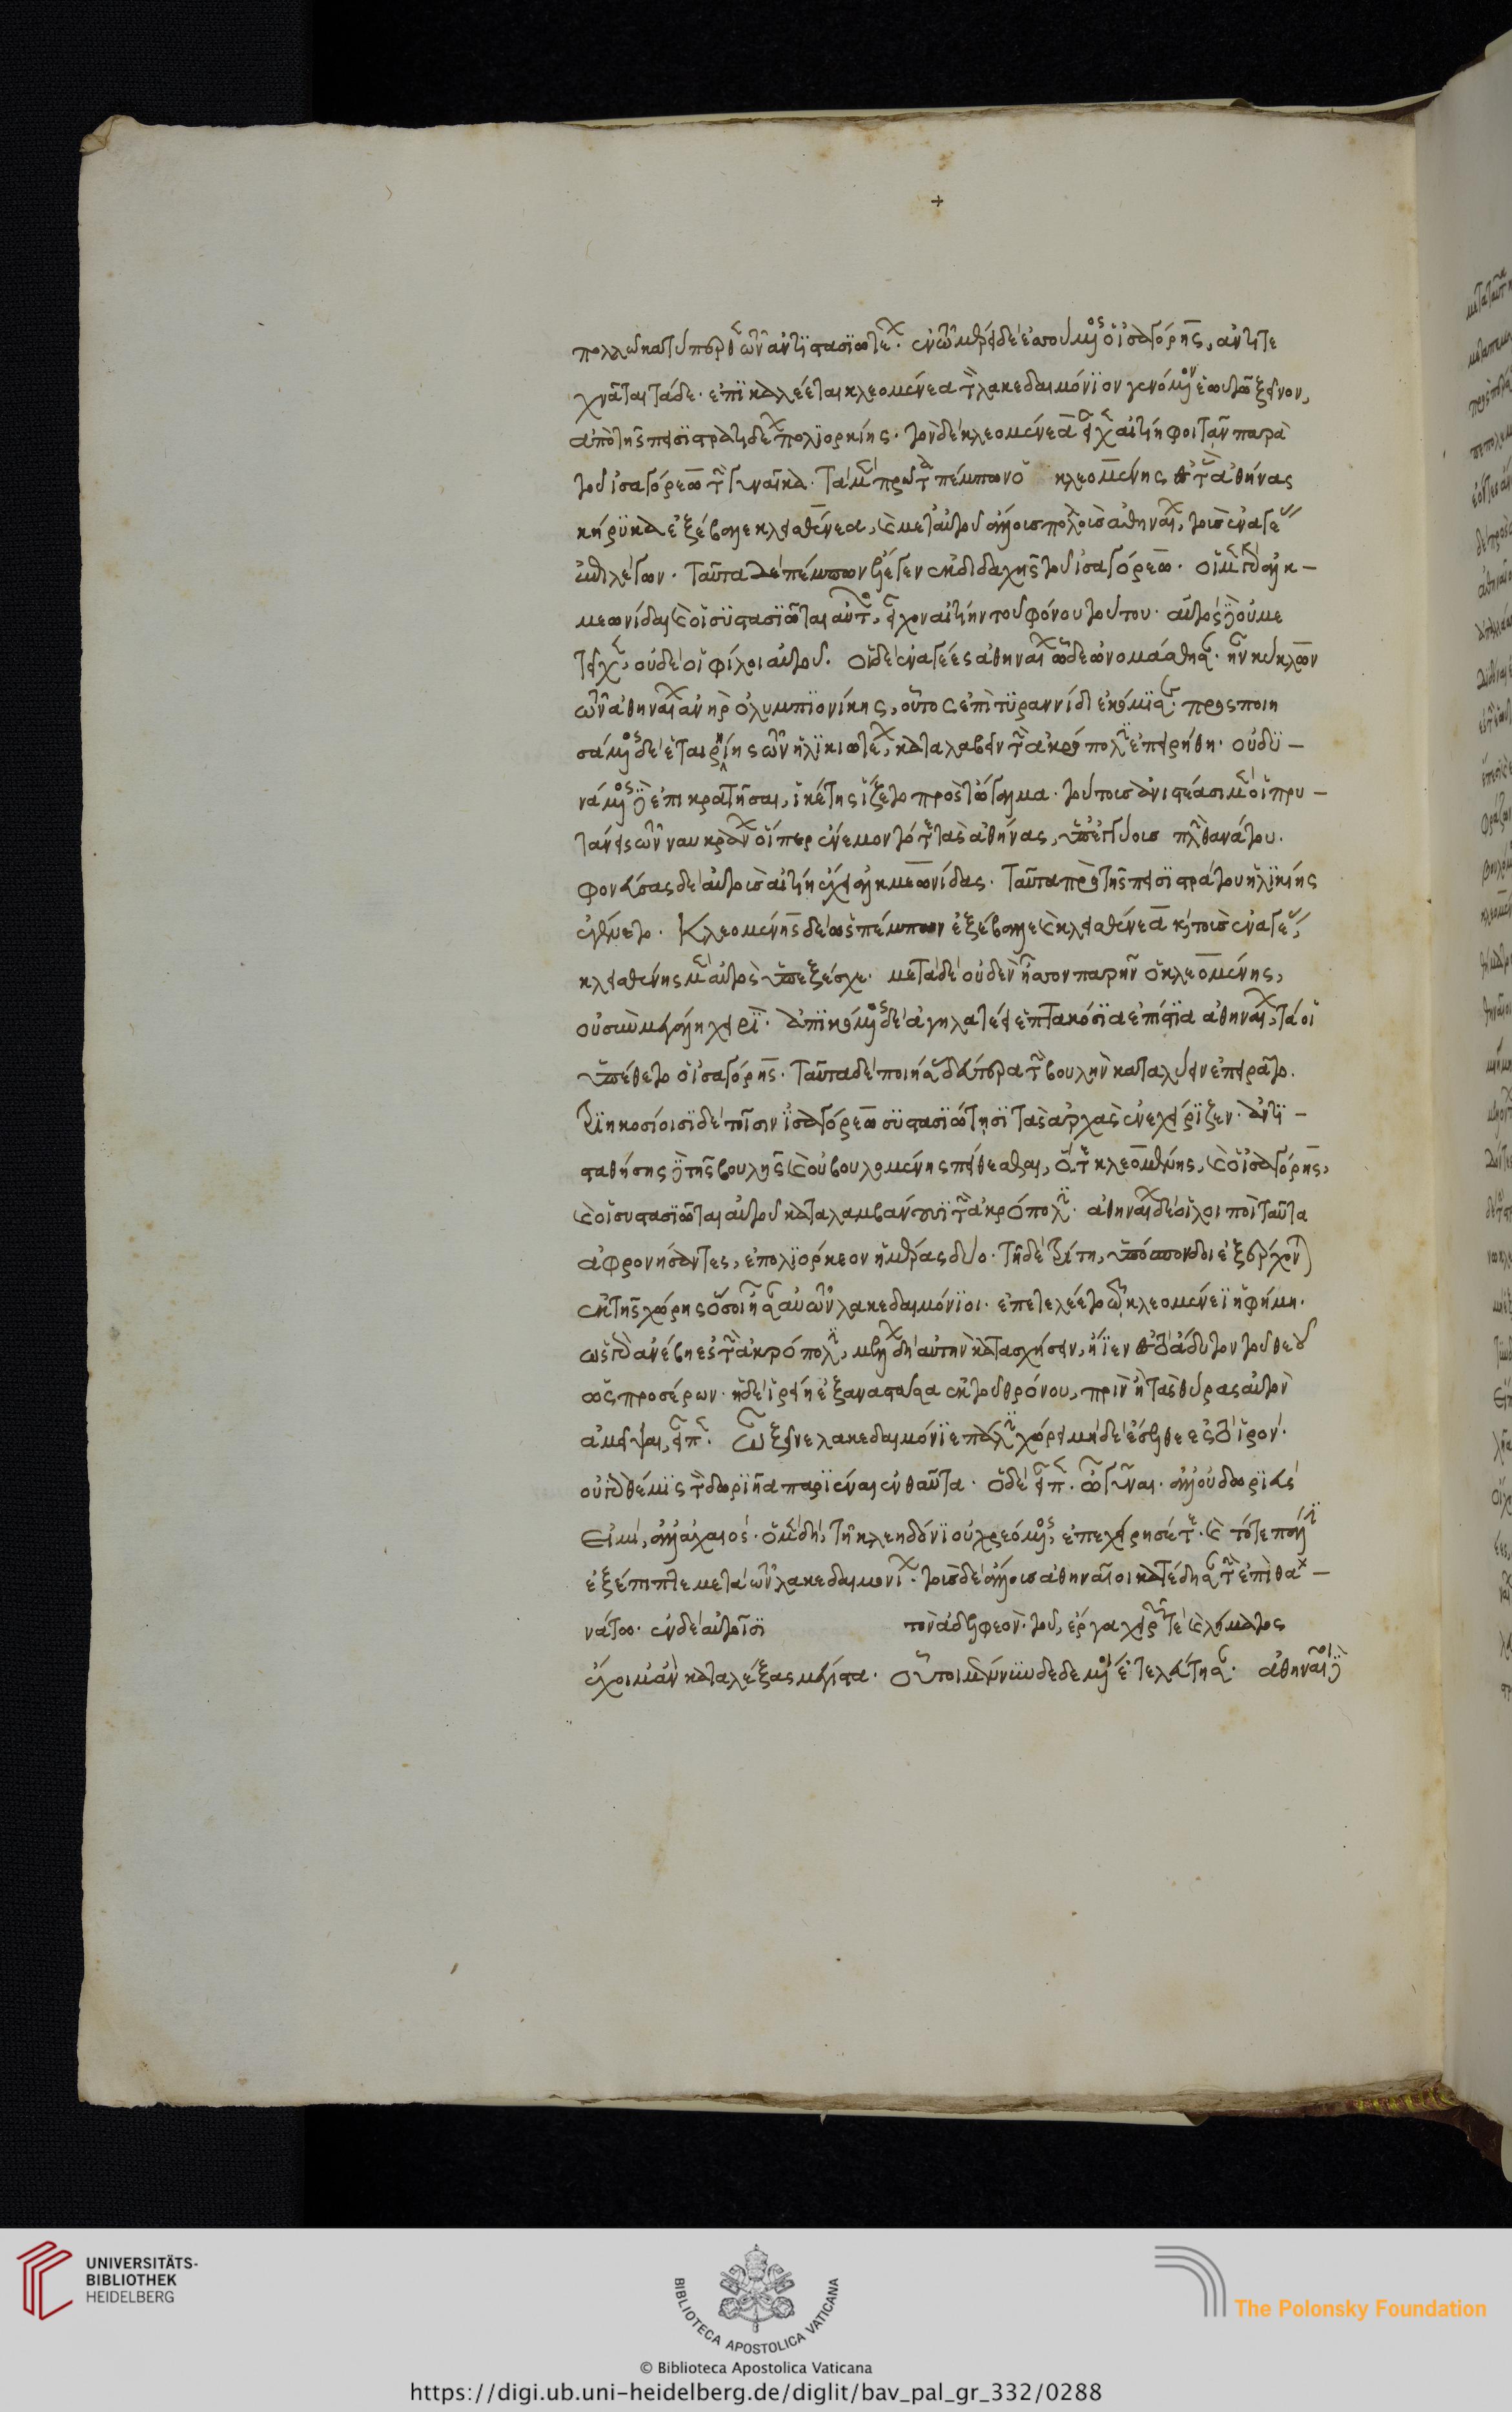 πολλῶ κατύπερθε τῶν ἀντιστασιωτέων. ἐν τῶ μέρει δὲ ἑσσούμενος ὁ ἰσαγόρης, ἀντιτε
χνᾶται τάδε. ἐπικαλέεται κλεομένεα τὸν λακεδαιμόνιον γενόμενον ἑωυτῶ ξεῖνον,
ἀπὸ τῆς πεισιστρατιδέων πολιορκίης. τὸν δὲ κλεομένεα εἶχε αἰτίη φοιτᾶν παρὰ
τοῦ ἰσαγόρεω τὴν γυναῖκα. Τὰ μὲν πρῶτα πέμπων ὁ κλεομένης ἐς τὰς ἀθήνας
κήρυκα ἐξέβαλλε κλεισθένεα, καὶ μετ' αὐτοῦ ἄλλους πολλοὺς ἀθηναίων, τοὺς ἐναγέας
ἐπιλέγων. Ταῦτα δὲ πέμπων ἔλεγεν ἐκ διδαχῆς τοῦ ἰσαγόρεω. οἱ μὲν γὰρ ἀλκ-
μεωνίδαι καὶ οἱ συστασιῶται αὐτῶν, εἶχον αἰτίην τοῦ φόνου τούτου. αὐτὸς δὲ οὐ με
τεῖχε, οὐδὲ οἱ φίλοι αὐτοῦ. οἱ δὲ ἐναγέες ἀθηναίων ὧδε ὠνομάσθησαν. ἦν κύλων
τῶν ἀθηναίων ἀνὴρ ὀλυμπιονίκης, οὗτος ἐπὶ τυραννίδι ἐκόμησε. προσποιη
σάμενος δὲ ἑταιρηίην τῶν ἡλικιωτέων, καταλαβεῖν τὴν ἀκρόπολιν ἐπειρήθη. οὐ δυ-
νάμενος δὲ ἐπικρατῆσαι, ἱκέτης ἵζετο πρὸς τὸ ἄγαλμα. τούτους ἀνιστέασι μὲν οἱ πρυ-
τάνεις τῶν ναυκράρων οἵπερ ἔνεμον τότε τὰς ἀθήνας, ὑπεγγύους πλὴν θανάτου.
φονεῦσαι δὲ αὐτοὺς αἰτίη ἔχει ἀλκμεωνίδας. Ταῦτα πρὸ τῆς πεισιστράτου ἡλικίης
ἐγένετο. Κλεομένης δὲ ὡς πέμπων ἐξέβαλλε καὶ κλεισθένεα καὶ τοὺς ἐναγέας,
κλεισθένης μὲν αὐτὸς ὑπεξέσχε. μετὰ δὲ οὐδὲν ἧσσον παρῆν ὁ κλεομένης,
οὐ σὺν μεγάλη χειρί. ἀπικόμενος δὲ ἀγηλατέει ἑπτακόσια ἐπίστια ἀθηναίων, τά οἱ
ὑπέθετο ὁ ἰσαγόρης. Ταῦτα δὲ ποιήσας δεύτερα τὴν βουλὴν καταλύειν ἐπειρᾶτο.
Τριηκοσίοισι δὲ τοῖσιν ἰσαγόρεω συστασιώτησι τὰς ἀρχὰς ἐνεχείριζεν. ἀντι-
σταθήσης δὲ τῆς βουλῆς καὶ οὐ βουλομένης πείθεσθαι, ὅ τε κλεομένης, καὶ ὁ ἰσαγόρης,
καὶ οἱ συστασιῶται αὐτοῦ καταλαμβάνουσι τὴν ἀκρόπολιν. ἀθηναίων δὲ οἱ λοιποὶ ταῦτα
φρονήσαντες, ἐπολιόρκεον ἡμέρας δύο. Τῆ δὲ τρίτη, ὑπόσπονδοι ἐξέρχονται
ἐκ τῆς χώρης ὅσοι ἦσαν αὐτῶν λακεδαιμόνιοι. ἐπετελέετο δὲ τῶ κλεομένεϊ ἡ φήμη.
ὡς γὰρ ἀνέβη ἐς τὴν ἀκρόπολιν, μέλλων δὴ αὐτὴν κατασχήσειν, ἤϊεν ἐς τὸ ἄδυτον τοῦ θεοῦ
ὡς προσερέων. ἡ δὲ ἱρείη ἐξαναστᾶσα ἐκ τοῦ θρόνου, πρὶν ἢ τὰς θύρας αὐτὸν
ἀμεῖψαι, εἶπε. Ὦ ξεῖνε λακεδαιμόνιε πάλιν χώρει μηδὲ ἔσελθε ἐς τὸ ἱρόν.
οὐ γὰρ θέμις τὸν δωριῆα παριέναι ἐνθαῦτα. ὁ δὲ εἶπε. ὦ γύναι. ἀλλ' οὐ δωριεύς
εἰμι, ἀλλ' ἀχαιός. ὁ μὲν δὴ, τῆ κληδόνι οὐ χρεόμενος, ἐπεχείρησέ τε. καὶ τότε πάλιν
ἐξέπιπτε μετὰ τῶν λακεδαιμονίων. τοὺς δὲ ἄλλους ἀθηναῖοι κατέδησαν τὴν ἐπὶ θα-
νάτω. ἐν δὲ αὐτοῖσι τὸν ἀδελφεόν. τοῦ, ἔργα χειρῶν τε καὶ λήματος
ἔχοιμ' ἂν καταλέξαι μέγιστα. Οὗτοι μέν νυν δεδεμένοι ἐτελεύτησαν. ἀθηναῖοι δὲ
UNIVERSITÄTS-
BIBLIOTHEK
HEIDELBERG
BIBLIOTECA APOSTOLICA VATICANA
The Polonsky Foundation
© Biblioteca Apostolica Vaticana
https://digi.ub.uni-heidelberg.de/diglit/bav_pal_gr_332/0288